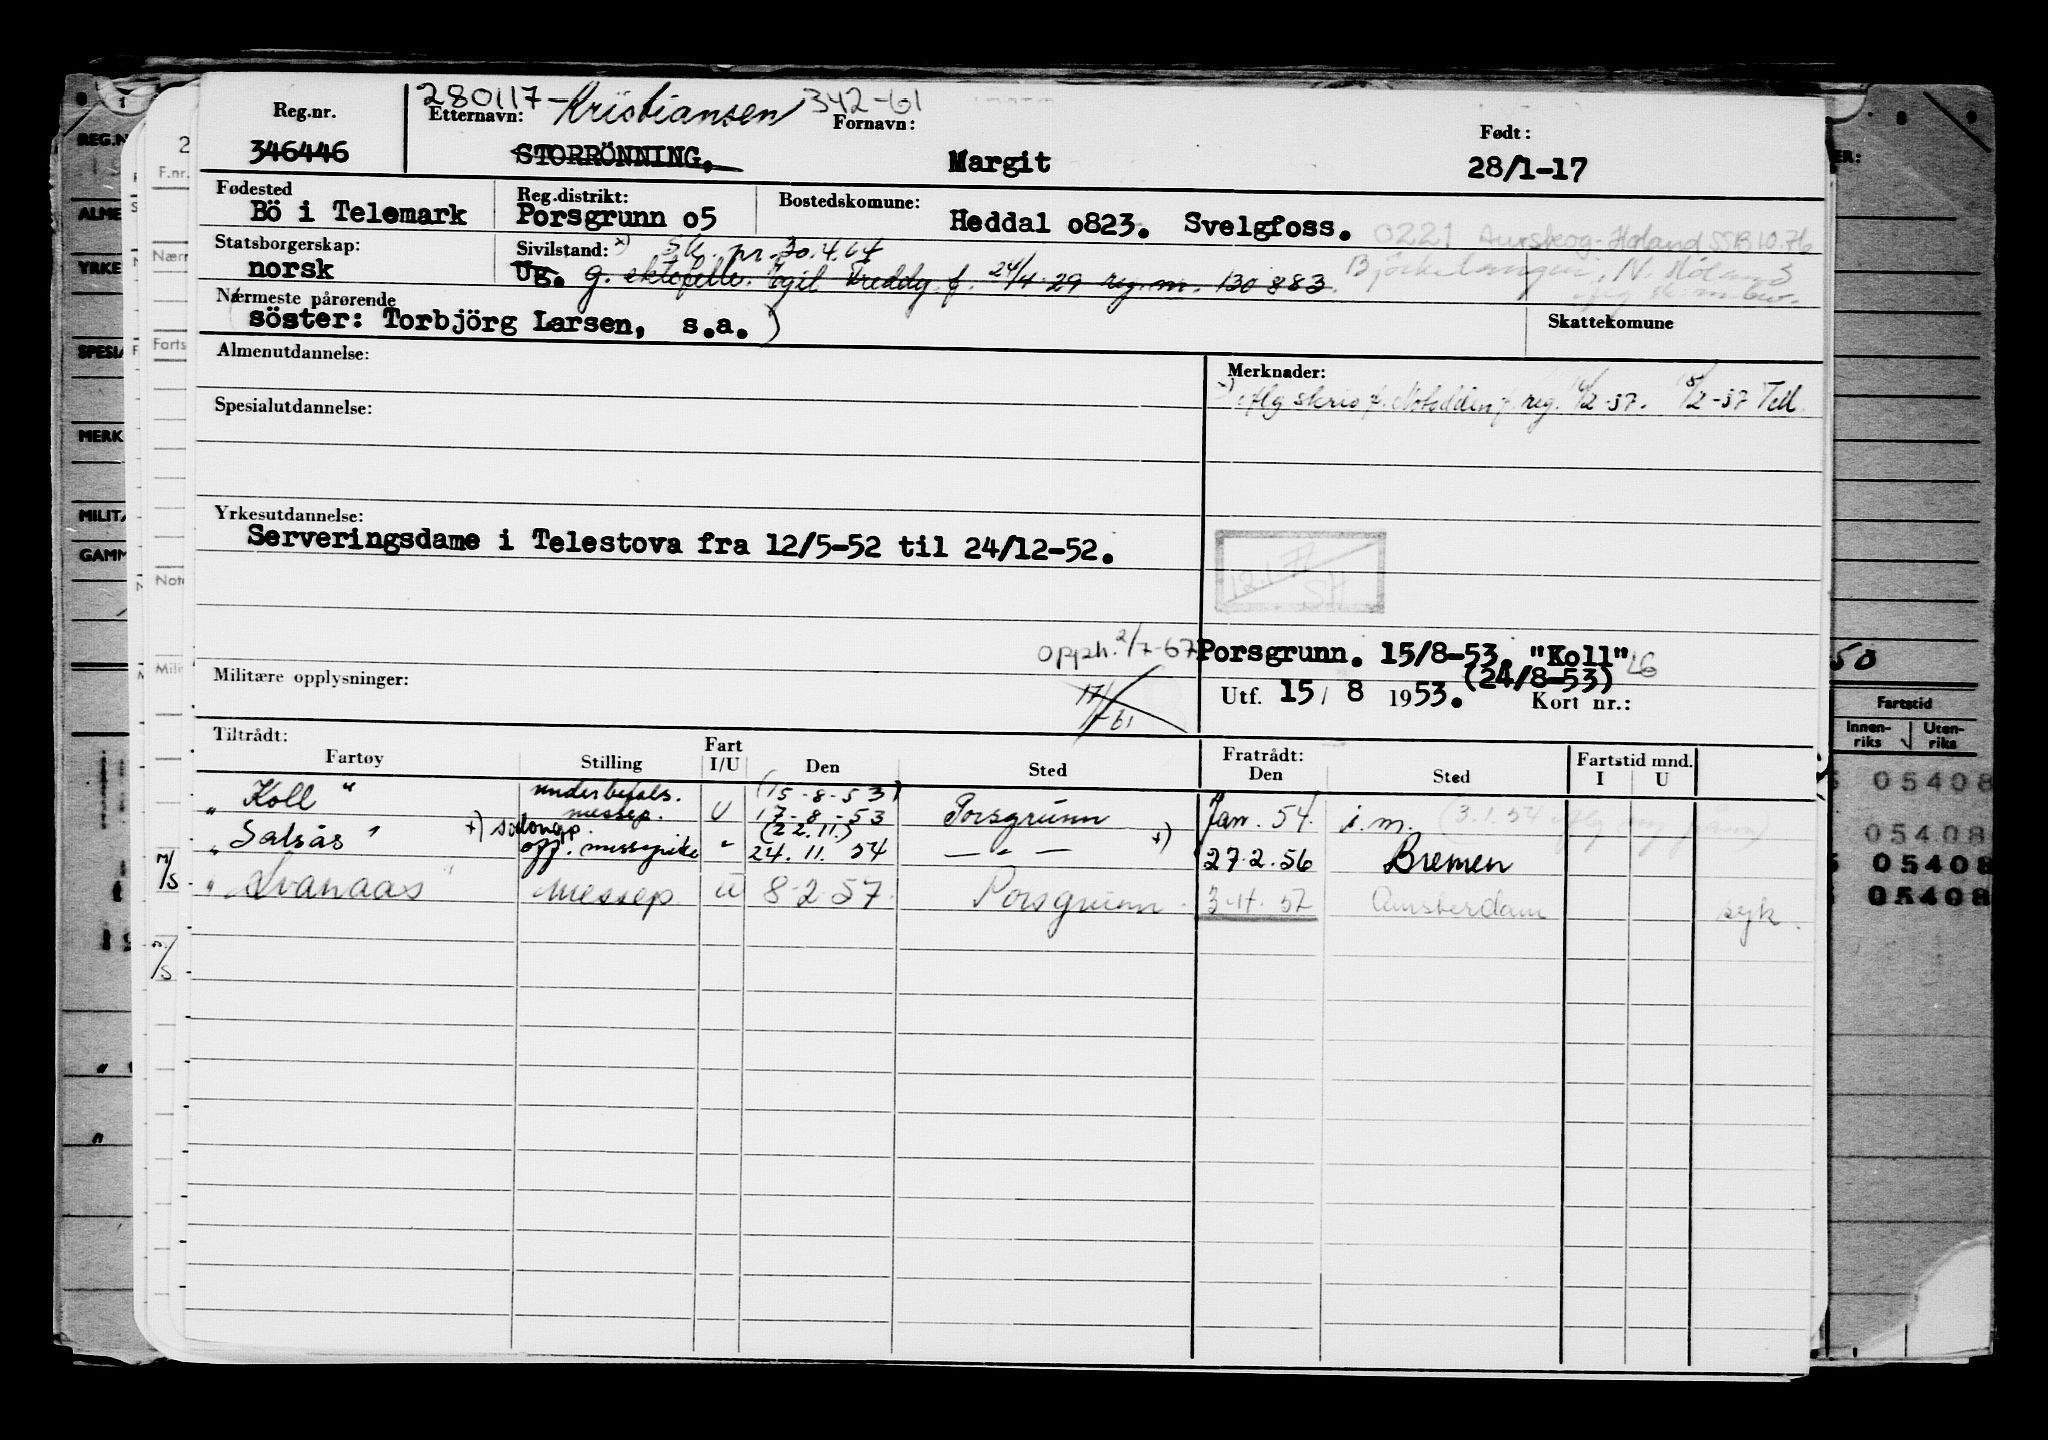 280117- Kristiansen 342-61
Reg.nr. Etternavn: Fornavn: Født:
346446 STORRÖNNING, Margit 28/1-17
Fødested Reg.distrikt: Bostedskomune:
Bö i Telemark Porsgrunn o5 Heddal o823. Svelgfoss. 0221 Aurskog-Høland SSB 10.76
Statsborgerskap: Sivilstand: x) Sk. pr. 30.4.64 Bjørkelangen, N. Høland
norsk Ug. g. ektefelle: Egil Freddy f. 24/4-29 reg.nr. 130 883.
Nærmeste pårørende
(söster: Torbjörg Larsen, s.a.) Skattekomune
Almenutdannelse: Merknader:
iflg skriv f. Notodden f. reg. 14/2-57. 15/2-57 Tell.
Spesialutdannelse:
Yrkesutdannelse:
Serveringsdame i Telestova fra 12/5-52 til 24/12-52.
12.1.77
SH
opph. 2/7-67 Porsgrunn. 15/8-53. "Koll"
(24/8-53)
Militære opplysninger: 17/1-61 Utf. 15/8 1953. Kort nr.:
Tiltrådt: Fratrådt: Fartstid mnd.
Fartøy Stilling Fart I/U Den Sted Den Sted I U
(15-8-53)
"Koll" underbefals. messep. U 17-8-53 Porsgrunn Jan. 54. i.m. (3.1.54
"Salsås" x) salongp. (22.11.)
off. messepike " 24.11.54 — " — x) 27.2.56 Bremen
"Svanaas" messep U 8-2-57. Porsgrunn 3-4-57 Amsterdam syk.
M/S
M/S
REG.N
ALME
YRKE
SPESIA
MERK
MILITÆ
GAMM
F.nr.
Nærm
Farts
Note
Milit
ER:
50
Fartstid
Innen-riks Uten-riks
05408
05408
05408
05408